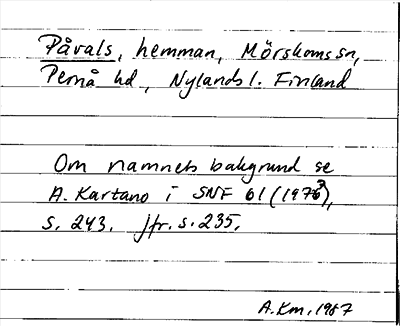 Påvals, hemman, Mörskoms sn,
Pernå hd, Nylands l. Finland
Om namnets bakgrund se
A. Kartano i SNF 61 (1973),
s. 243. jfr. s. 235.
A.Km. 1987